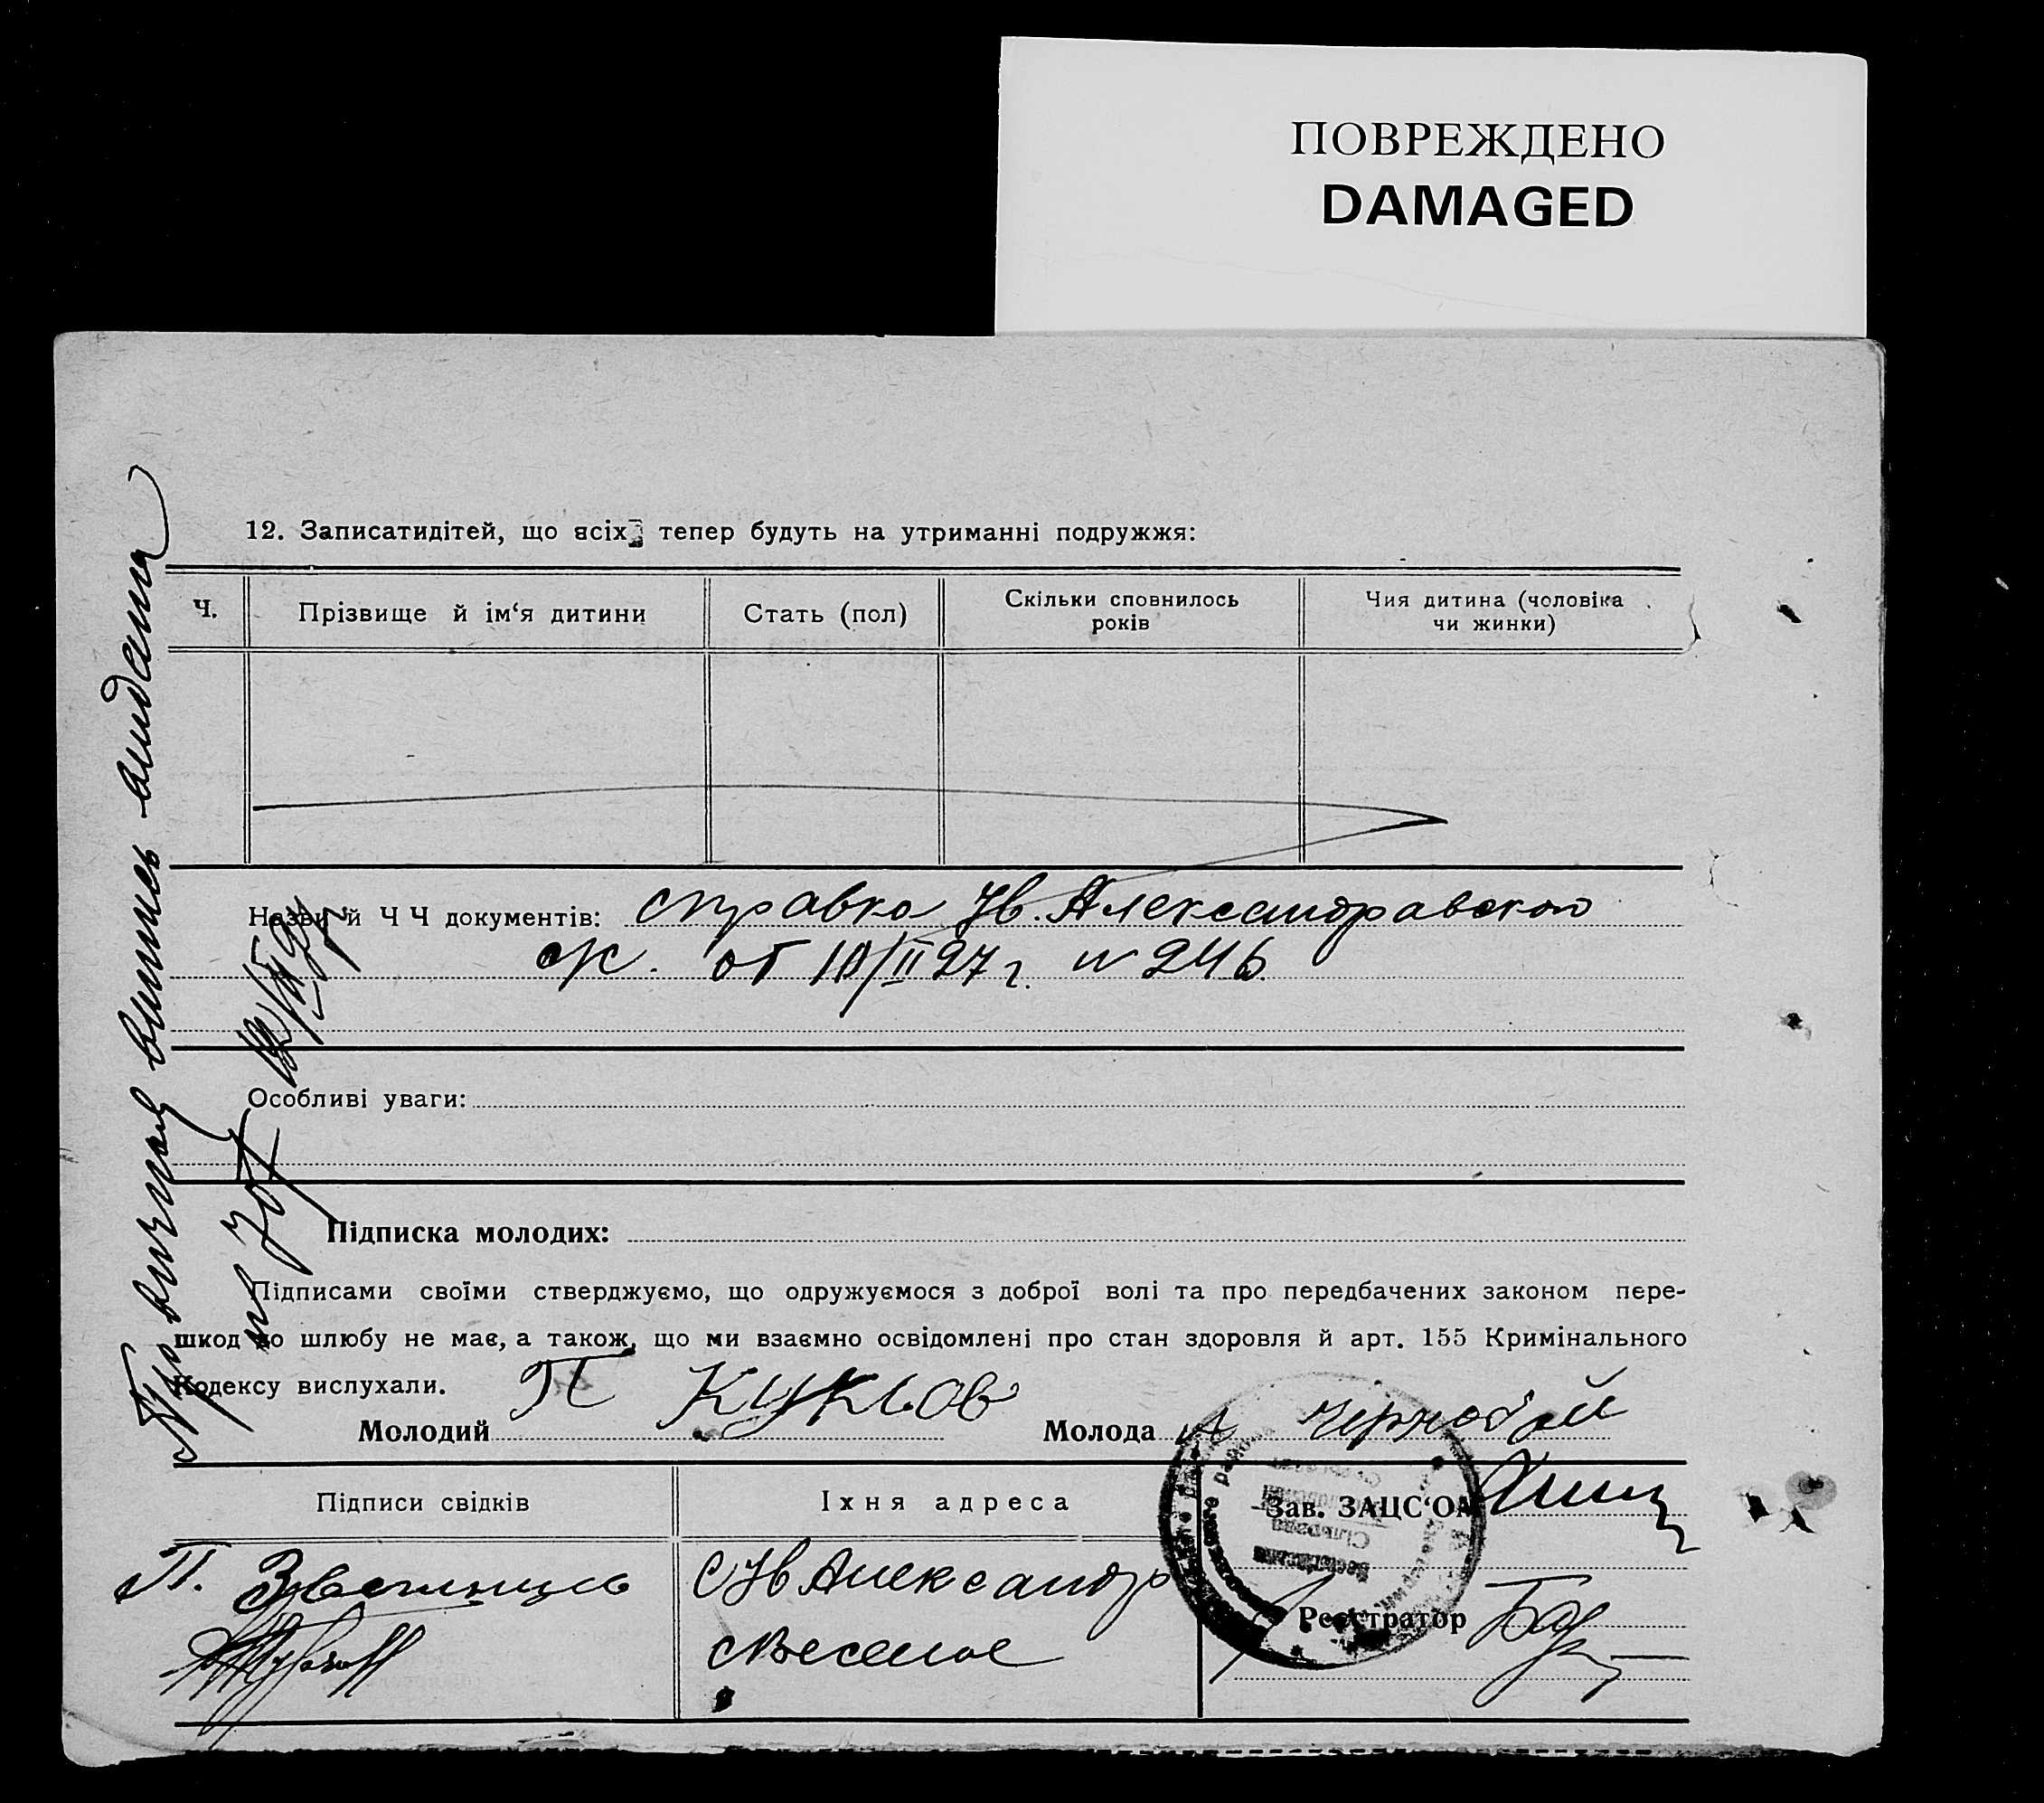 ПОВРЕЖДЕНО
DAMAGED
12. Записатидітей, що всіх тепер будуть на утриманні подружжя:
Ч.
Прізвище й ім‘я дитини
Стать (пол)
Скільки сповнилось
років
Чия дитина (чоловіка
чи жинки)
Назви й Ч Ч документів: справка Ив. Александравской
с/с. от 10/II 27 г. № 246
Особливі уваги:
Підписка молодих:
Підписами своїми стверджуємо, що одружуємося з доброї волі та про передбачених законом пере-
шкод до шлюбу не має, а також, що ми взаємно освідомлені про стан здоровля й арт. 155 Кримінального
Кодексу вислухали.
Молодий П Куксов Молода
Підписи свідків
Їхня адреса
Зав. ЗАЦС‘ОМ
П.
С Ив Александр
с Веселое
Реєстратор
випись видана